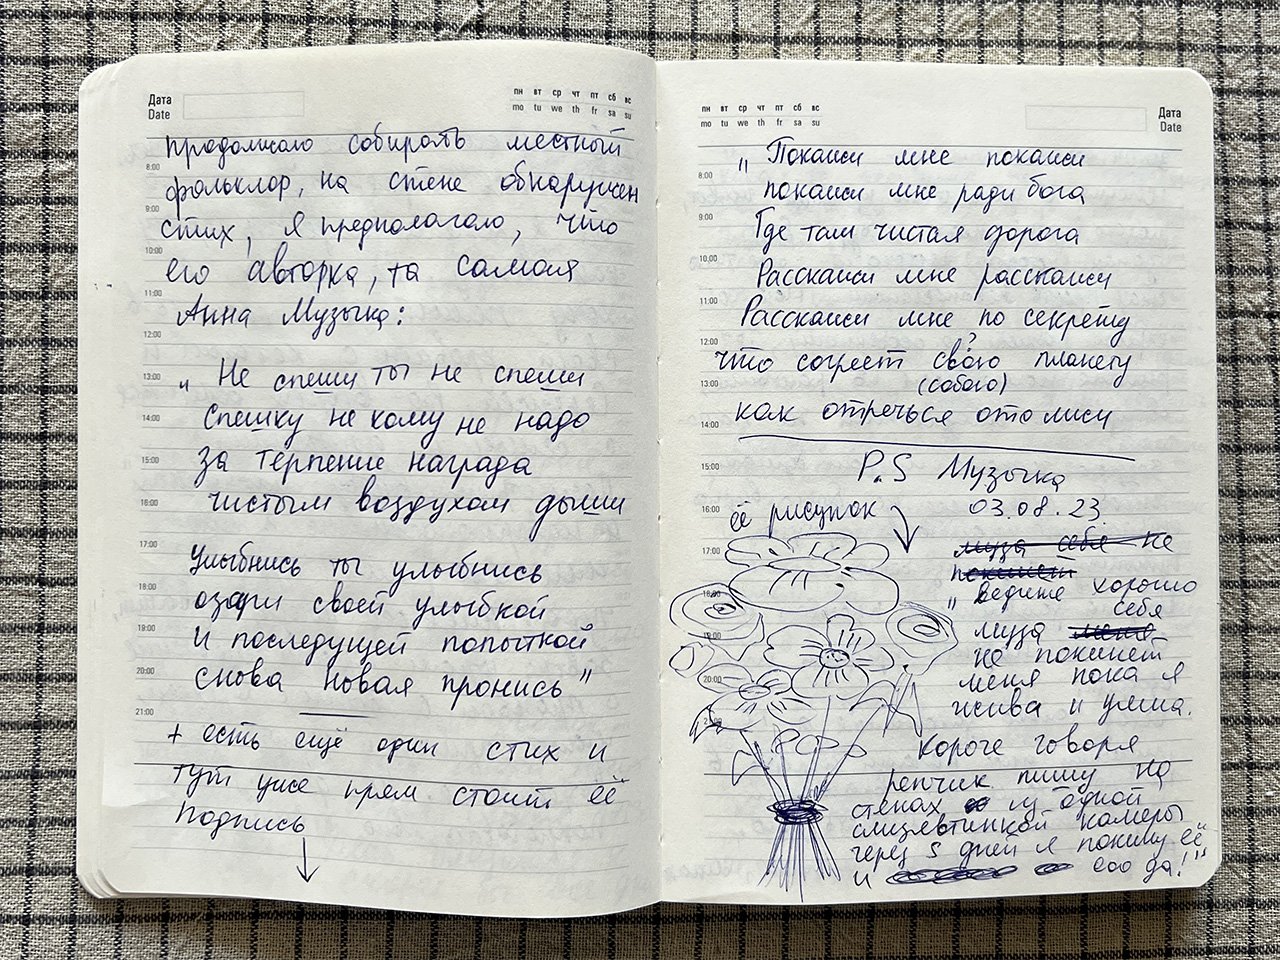 Дата
Date
пн вт ср чт пт сб вс
mo tu we th fr sa su
продолжаю собирать местный
8:00
фольклор, на стене обнаружен
9:00
стих, я предполагаю, что
10:00
его авторка, та самая
11:00
Анна Музыка:
12:00
„ Не спеши ты не спеши
13:00
Спешку не кому не надо
14:00
За терпение награда
15:00
чистым воздухом дыши
16:00
17:00
Улыбнись ты улыбнись
18:00
озари своей улыбкой
19:00
И последущей попыткой
20:00
снова новая пронись"
21:00
+ есть ещё один стих и
тут уже прям стоит её
подпись
пн вт ср чт пт сб вс
mo tu we th fr sa su
Дата
Date
„ Покажи мне покажи
8:00
покажи мне ради бога
9:00
Где там чистая дорога
10:00
Расскажи мне расскажи
11:00
Расскажи мне по секрету
12:00
?
что согреет свою планету
13:00
(собою)
как отречься ото лжи
14:00
15:00
P.S Музычка
16:00
её рисунок
03.08.23.
17:00
муза себя не
покинет
18:00
„ ведите хорошо
себя
19:00
муза меня
не покинет
20:00
меня пока я
жива и умна.
21:00
короче говоря
репчик пишу на
стенах из одной
слизевтинкой камеры
через 5 дней я покину её
и его да!"